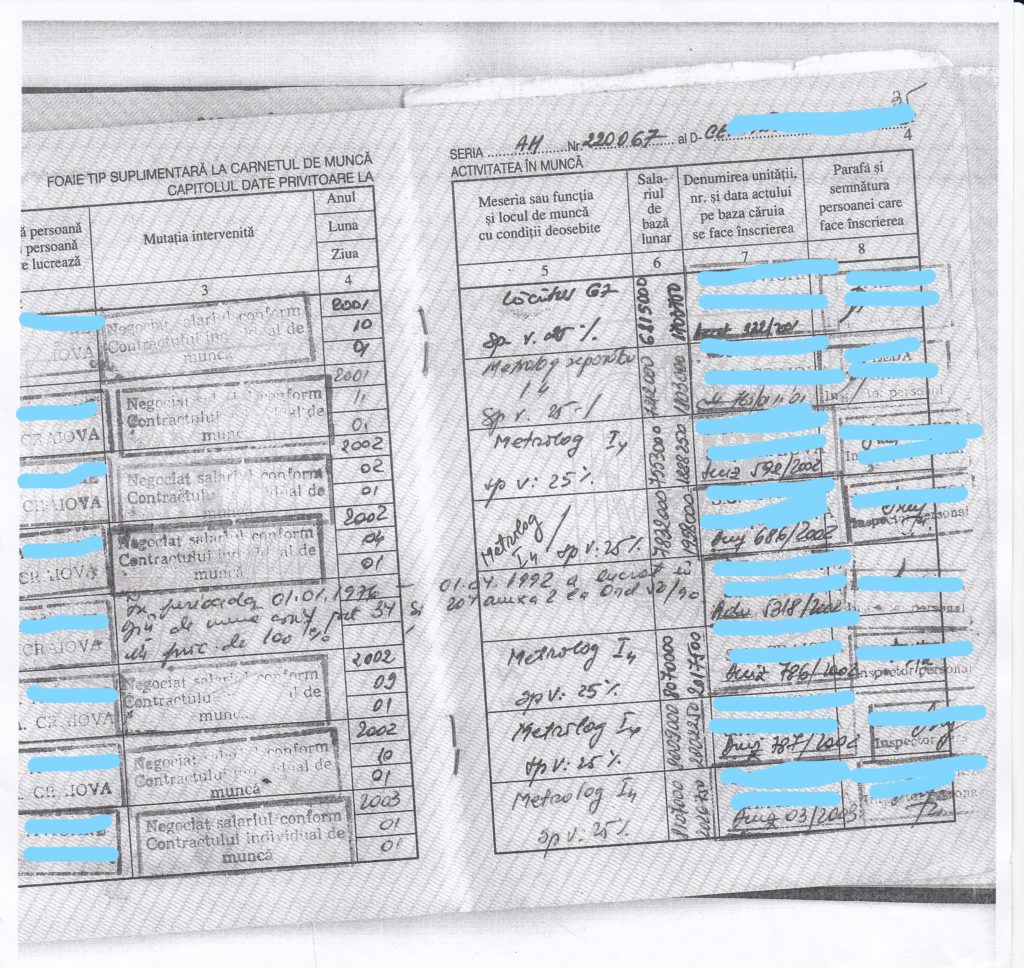 35
SERIA AH Nr. 220067 al D- CE
4
FOAIE TIP SUPLIMENTARĂ LA CARNETUL DE MUNCĂ
CAPITOLUL DATE PRIVITOARE LA
ACTIVITATEA ÎN MUNCĂ
persoană
persoană
e lucrează
Mutația intervenită
Anul
Luna
Ziua
Meseria sau funcția
și locul de muncă
cu condiții deosebite
Sala-
riul
de
bază
lunar
Denumirea unității,
nr. și data actului
pe baza căruia
se face înscrierea
Parafă și
semnătura
persoanei care
face înscrierea
3
4
5
6
7
8
IOVA
Negociat salariul conform
Contractului individual de
muncă
2001
10
01
Lăcătuș G7
Sp v. 25%
6815000
CRAIOVA
Negociat salariul conform
Contractului individual de
muncă
2001
11
01
Metrolog
Sp v. 25%
CRAIOVA
Negociat salariul conform
Contractului individual de
muncă
2002
02
01
Metrolog I4
Sp v: 25%
7153000
1788250
592/2002
CRAIOVA
Negociat salariul conform
Contractului individual de
muncă
2002
04
01
Metrolog
I4 / Sp v: 25%
686/2002
Inspector personal
CRAIOVA
În perioada 01.01.1976 – 01.04.1992 a lucrat în
gr. de muncă conf. pct 34 și 207 anexa 2 la Ord 50/90
în proc. de 100%
5318/2002
personal
CRAIOVA
Negociat salariul conform
Contractului individual de
muncă
2002
09
01
Metrolog I4
Sp v: 25%
8070000
2017500
786/2002
Inspector personal
CRAIOVA
Negociat salariul conform
Contractului individual de
muncă
2002
10
01
Metrolog I4
Sp v: 25%
787/2002
Inspector
Negociat salariul conform
Contractului individual de
muncă
2003
01
01
Metrolog I4
Sp v: 25%
03/2003